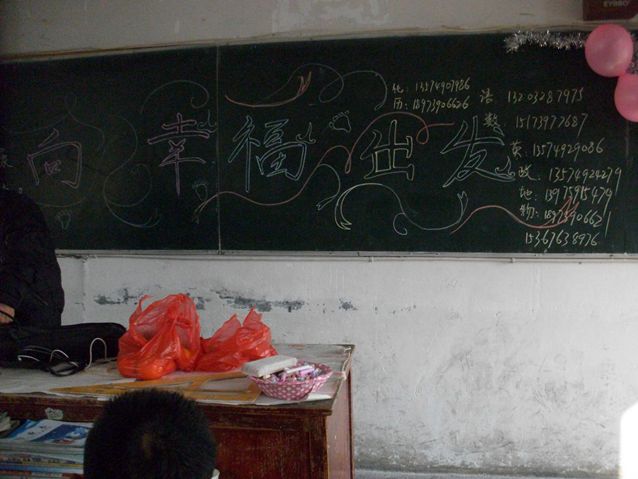 向幸福出发
化: 13574907986
历: 18973906626
语 13203287975
数 15173977687
英: 13574929086
政. 13574924279
地: 13975915479
物: 18973906621
15367638976